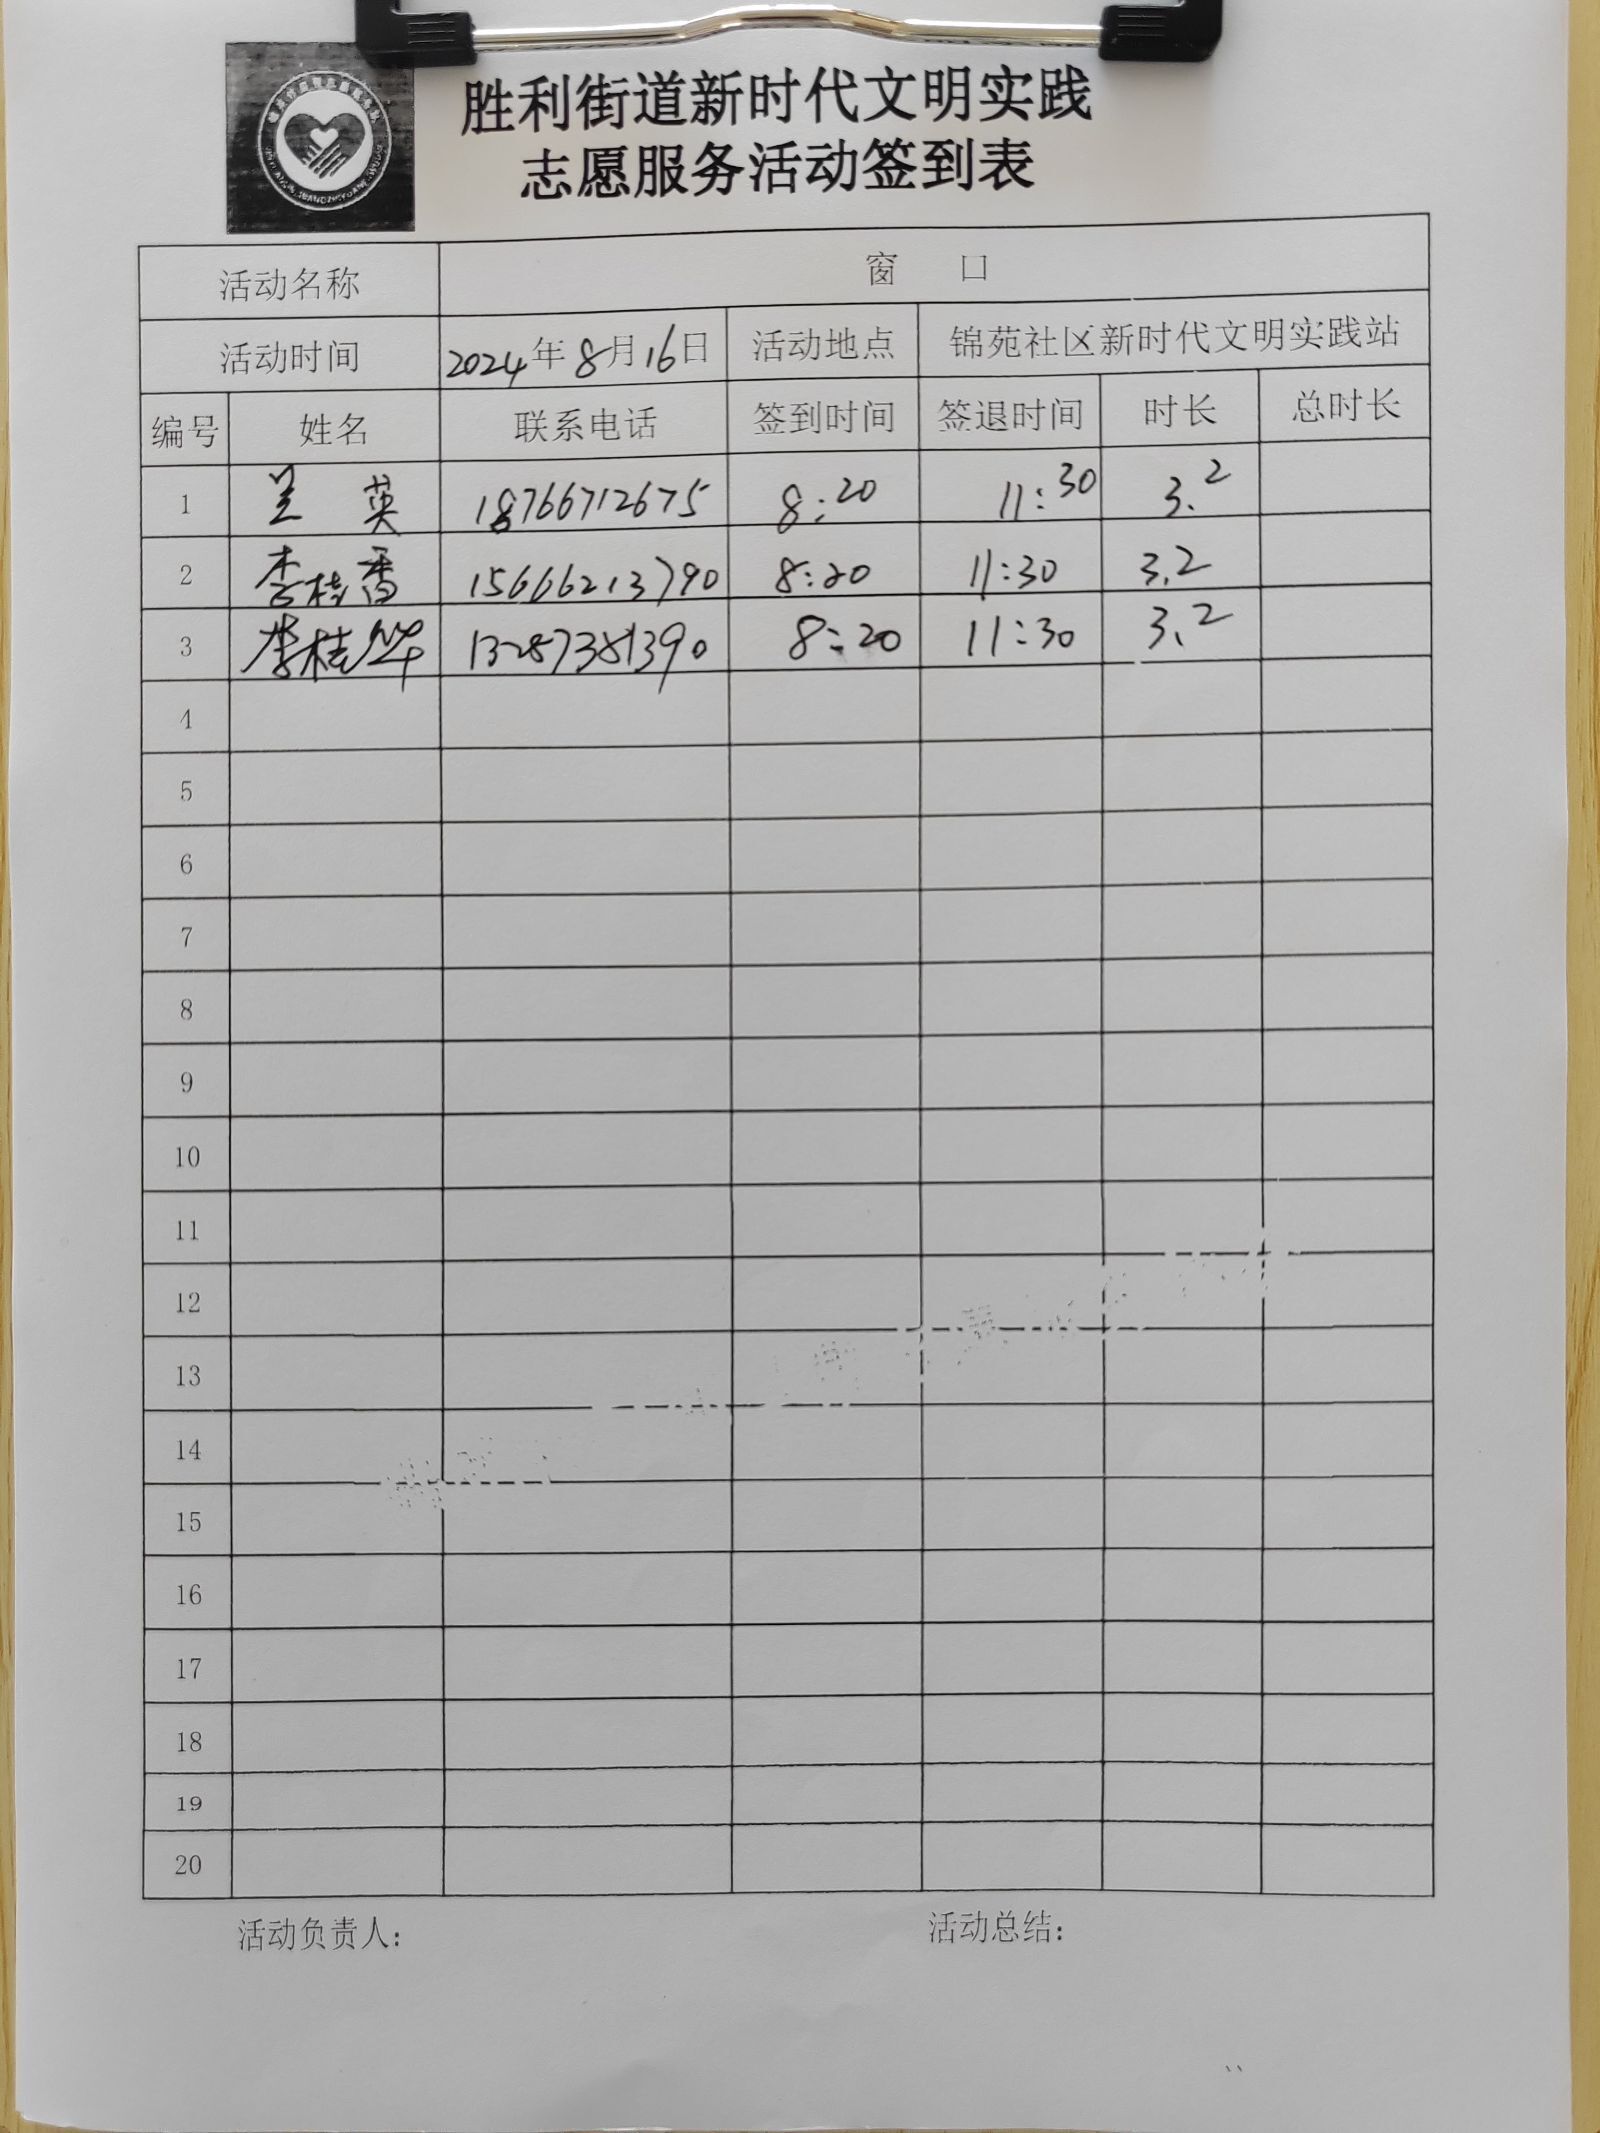 胜利街道新时代文明实践
志愿服务活动签到表
活动名称 窗 口
活动时间 2024年8月16日 活动地点 锦苑社区新时代文明实践站
编号 姓名 联系电话 签到时间 签退时间 时长 总时长
1 兰 英 18766712675 8:20 11:30 3.2
2 李桂香 15666213790 8:20 11:30 3.2
3 李桂华 13287381390 8:20 11:30 3.2
4
5
6
7
8
9
10
11
12
13
14
15
16
17
18
19
20
活动负责人： 活动总结：